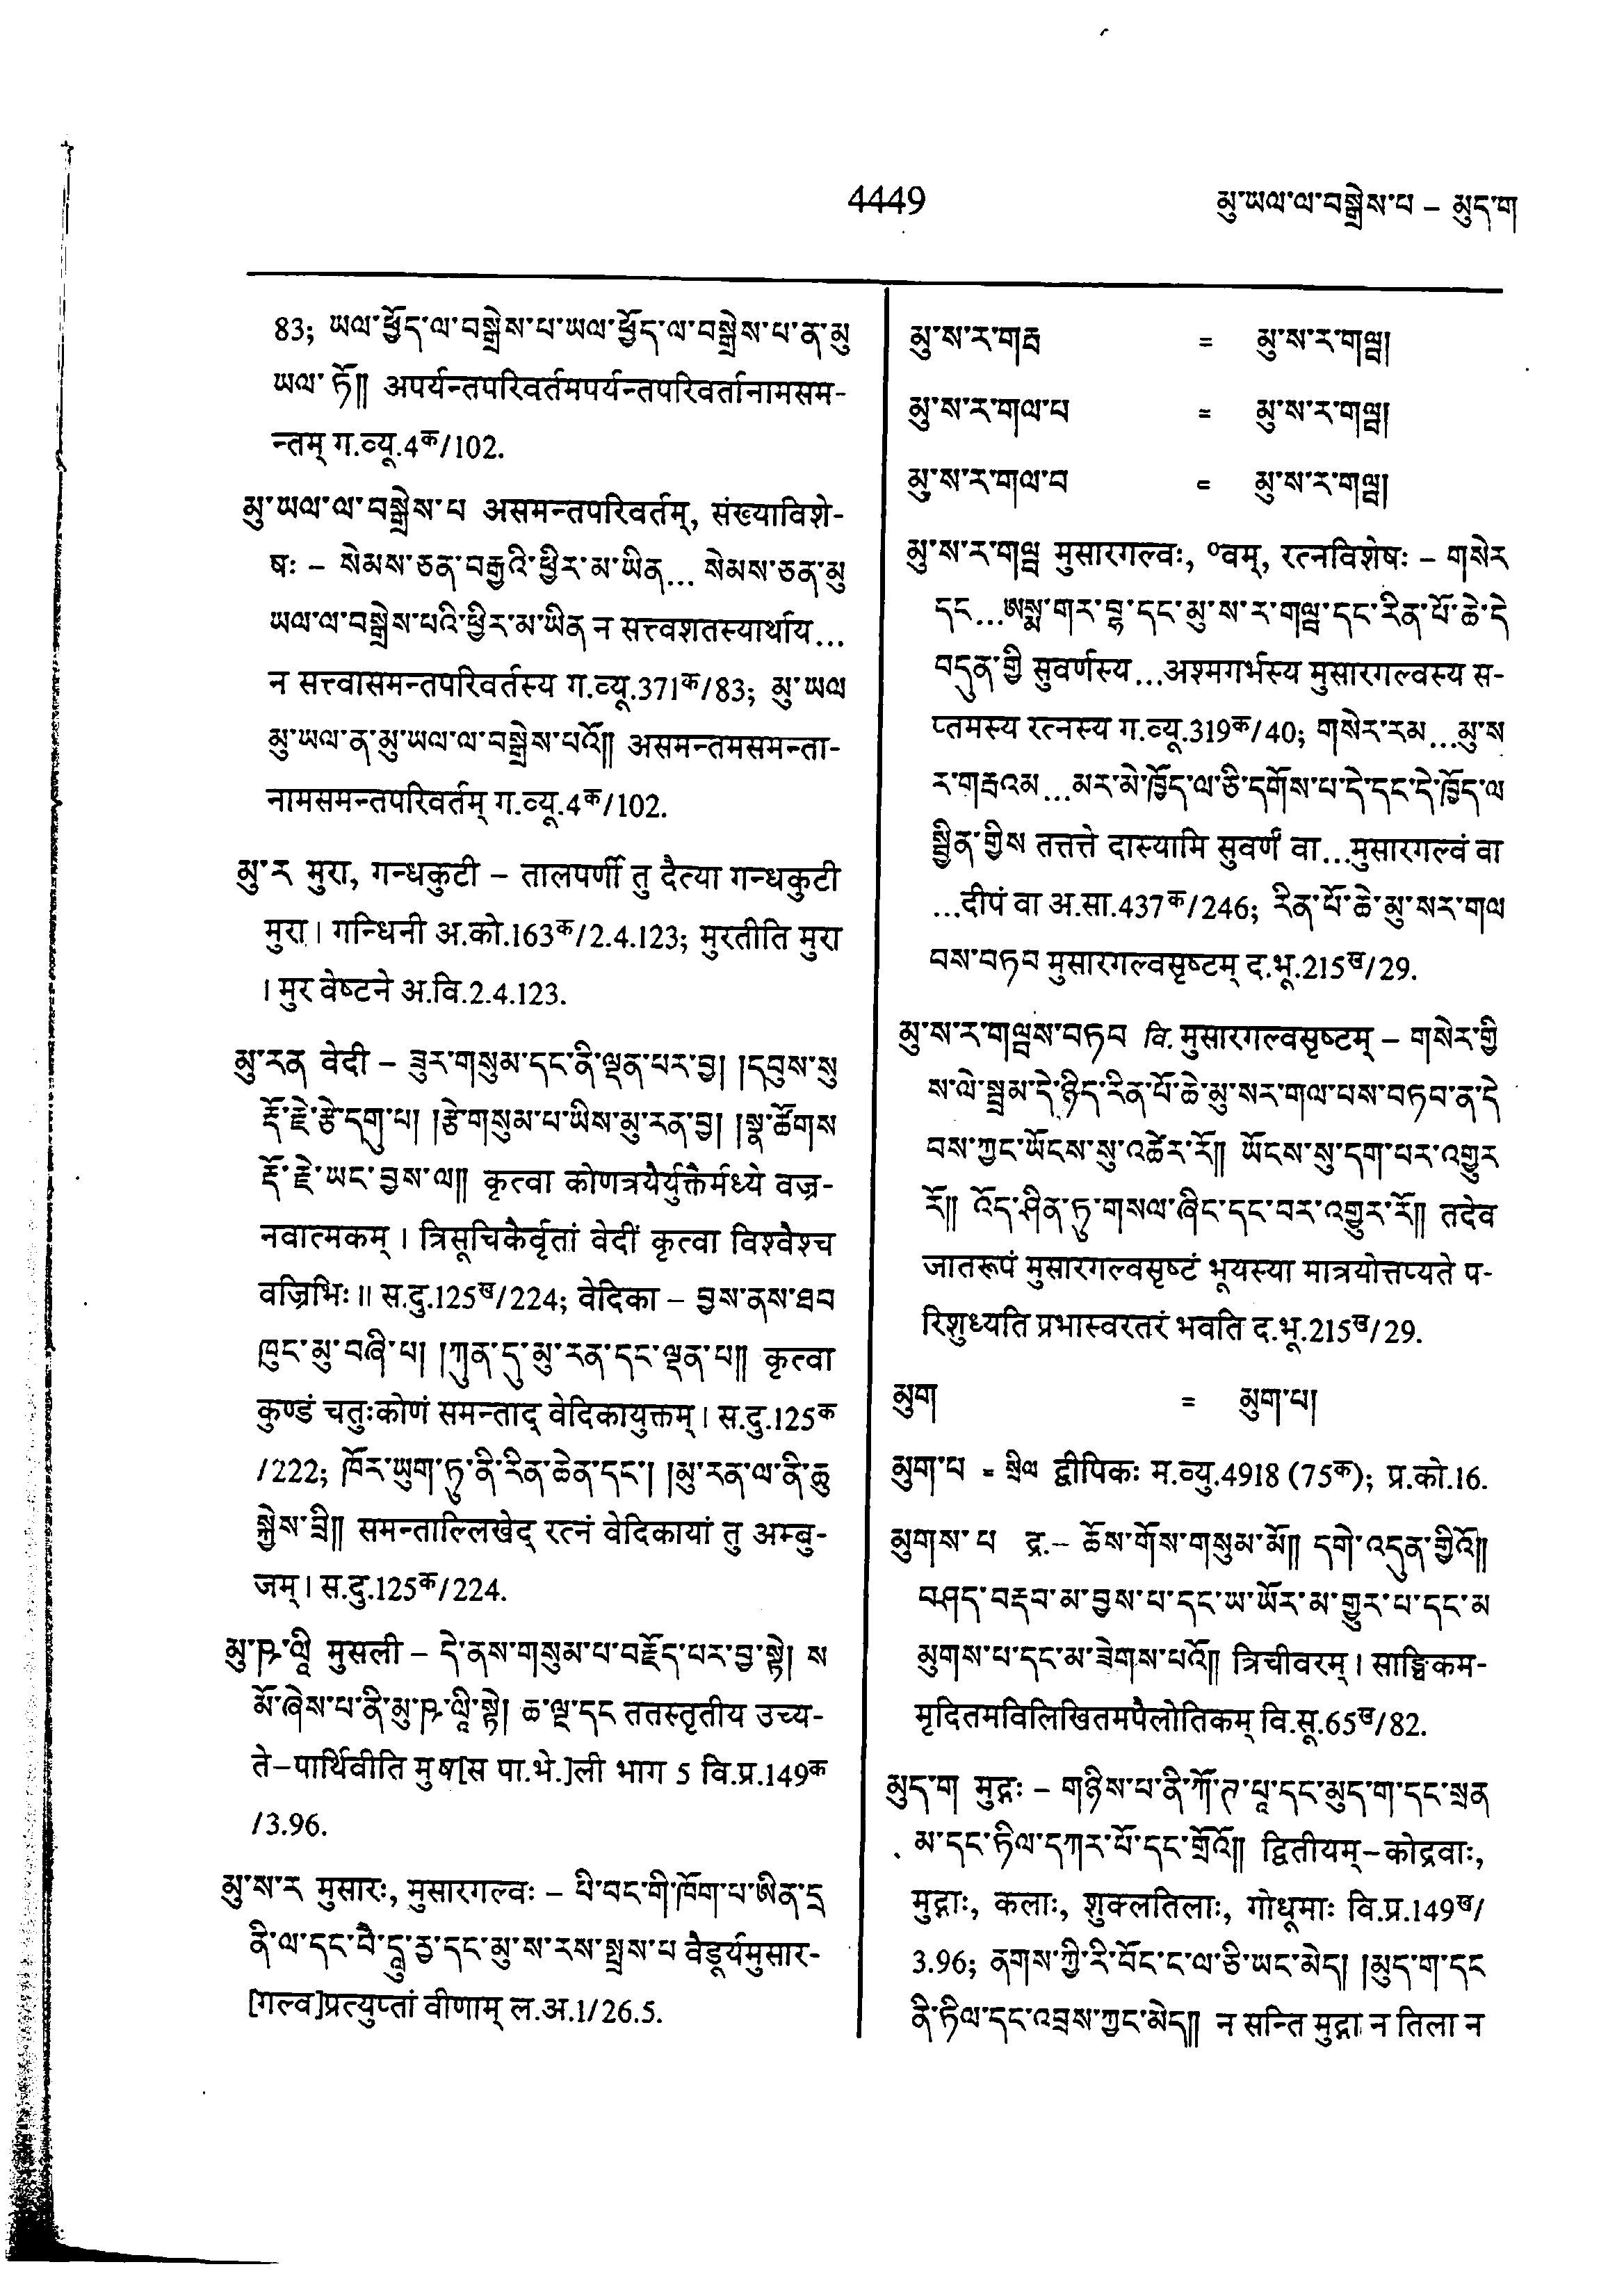 4449
མུ་ཡལ་ལ་བསྒྲེས་པ – མུད་ག
83; ཡལ་ཕྱོད་ལ་བསྒྲེས་པ་ཡལ་ཕྱོད་ལ་བསྒྲེས་པ་ན་མུ
ཡལ་ཏོ༎ अपर्यन्तपरिवर्तमपर्यन्तपरिवर्तानामसम-
न्तम् ग.व्यू.4क/102.
མུ་ཡལ་ལ་བསྒྲེས་པ असमन्तपरिवर्तम्, संख्याविशे-
षः – སེམས་ཅན་བརྒྱའི་ཕྱིར་མ་ཡིན... སེམས་ཅན་མུ
ཡལ་ལ་བསྒྲེས་པའི་ཕྱིར་མ་ཡིན न सत्त्वशतस्यार्थाय...
न सत्त्वासमन्तपरिवर्तस्य ग.व्यू.371क/83; མུ་ཡལ
མུ་ཡལ་ན་མུ་ཡལ་ལ་བསྒྲེས་པའོ༎ असमन्तमसमन्ता-
नामसमन्तपरिवर्तम् ग.व्यू.4क/102.
མུ་ར मुरा, गन्धकुटी – तालपर्णी तु दैत्या गन्धकुटी
मुरा। गन्धिनी अ.को.163क/2.4.123; मुरतीति मुरा
। मुर वेष्टने अ.वि.2.4.123.
མུ་རན वेदी – ཟུར་གསུམ་དང་ནི་ལྡན་པར་བྱ། །དབུས་སུ
རྡོ་རྗེ་རྩེ་དགུ་པ། །རྩེ་གསུམ་པ་ཡིས་མུ་རན་བྱ། །སྣ་ཚོགས
རྡོ་རྗེ་ཡང་བྱས་ལ༎ कृत्वा कोणत्रयैर्युक्तैर्मध्ये वज्र-
नवात्मकम्। त्रिसूचिकैर्वृतां वेदीं कृत्वा विश्वैश्च
वज्रिभिः॥ स.दु.125ख/224; वेदिका – བྱས་ནས་ཐབ
ཁུང་མུ་བཞི་པ། །ཀུན་དུ་མུ་རན་དང་ལྡན་པ༎ कृत्वा
कुण्डं चतुःकोणं समन्ताद् वेदिकायुक्तम्। स.दु.125क
/222; ཁོར་ཡུག་ཏུ་ནི་རིན་ཆེན་དང་། །མུ་རན་ལ་ནི་ཆུ
སྐྱེས་བྲི༎ समन्ताल्लिखेद् रत्नं वेदिकायां तु अम्बु-
जम्। स.दु.125क/224.
མུ་ཥ་ལཱི मुसली – དེ་ནས་གསུམ་པ་བརྗོད་པར་བྱ་སྟེ། ས
མོ་ཞེས་པ་ནི་མུ་ཥ་ལཱི་སྟེ། ཆ་ལྔ་དང ततस्तृतीय उच्य-
ते–पार्थिवीति मुष[स पा.भे.]ली भाग 5 वि.प्र.149क
/3.96.
མུ་ས་ར मुसारः, मुसारगल्वः – པི་བང་གི་ཁོག་པ་ཨིན་དྲ
ནི་ལ་དང་བཻ་དཱུརྱ་དང་མུ་ས་རས་སྤྲས་པ वैडूर्यमुसार-
[गल्व]प्रत्युप्तां वीणाम् ल.अ.1/26.5.
མུ་ས་ར་གརྦ = མུ་ས་ར་གལྦ།
མུ་ས་ར་གལ་པ = མུ་ས་ར་གལྦ།
མུ་ས་ར་གལ་བ = མུ་ས་ར་གལྦ།
མུ་ས་ར་གལྦ मुसारगल्वः, ०वम्, रत्नविशेषः – གསེར
དང...ཨསྨ་གར་བྷ་དང་མུ་ས་ར་གལྦ་དང་རིན་པོ་ཆེ་དེ
བདུན་གྱི सुवर्णस्य...अश्मगर्भस्य मुसारगल्वस्य स-
प्तमस्य रत्नस्य ग.व्यू.319क/40; གསེར་རམ...མུ་ས
ར་གརྦའམ...མར་མེ་ཁྱོད་ལ་ཅི་དགོས་པ་དེ་དང་དེ་ཁྱོད་ལ
སྦྱིན་གྱིས तत्तत्ते दास्यामि सुवर्णं वा...मुसारगल्वं वा
...दीपं वा अ.सा.437क/246; རིན་པོ་ཆེ་མུ་སར་གལ
བས་བཏབ मुसारगल्वसृष्टम् द.भू.215ख/29.
མུ་ས་ར་གལྦས་བཏབ वि. मुसारगल्वसृष्टम् – གསེར་གྱི
ས་ལེ་སྦྲམ་དེ་ཉིད་རིན་པོ་ཆེ་མུ་སར་གལ་པས་བཏབ་ན་དེ
བས་ཀྱང་ཡོངས་སུ་འཚེར་རོ༎ ཡོངས་སུ་དག་པར་འགྱུར
རོ༎ འོད་ཤིན་ཏུ་གསལ་ཞིང་དང་བར་འགྱུར་རོ༎ तदेव
जातरूपं मुसारगल्वसृष्टं भूयस्या मात्रयोत्तप्यते प-
रिशुध्यति प्रभास्वरतरं भवति द.भू.215ख/29.
མུག = མུག་པ།
མུག་པ = སྲིལ द्वीपिकः म.व्यु.4918 (75क); प्र.को.16.
མུགས་པ द्र.– ཆོས་གོས་གསུམ་མོ༎ དགེ་འདུན་གྱིའོ༎
བཤད་བརྡབ་མ་བྱས་པ་དང་ཡ་ཡོར་མ་གྱུར་པ་དང་མ
མུགས་པ་དང་མ་ཟེགས་པའོ༎ त्रिचीवरम्। साङ्घिकम-
मृदितमविलिखितमपैलोतिकम् वि.सू.65ख/82.
མུད་ག मुद्गः – གཉིས་པ་ནི་ཀོ་ཊ་པཱ་དང་མུད་ག་དང་སྲན
མ་དང་ཏིལ་དཀར་པོ་དང་གྲོའོ༎ द्वितीयम्–कोद्रवाः,
मुद्गाः, कलाः, शुक्लतिलाः, गोधूमाः वि.प्र.149ख/
3.96; ནགས་ཀྱི་རི་བོང་ང་ལ་ཅི་ཡང་མེད། །མུད་ག་དང
ནི་ཏིལ་དང་འབྲས་ཀྱང་མེད༎ न सन्ति मुद्गा न तिला न